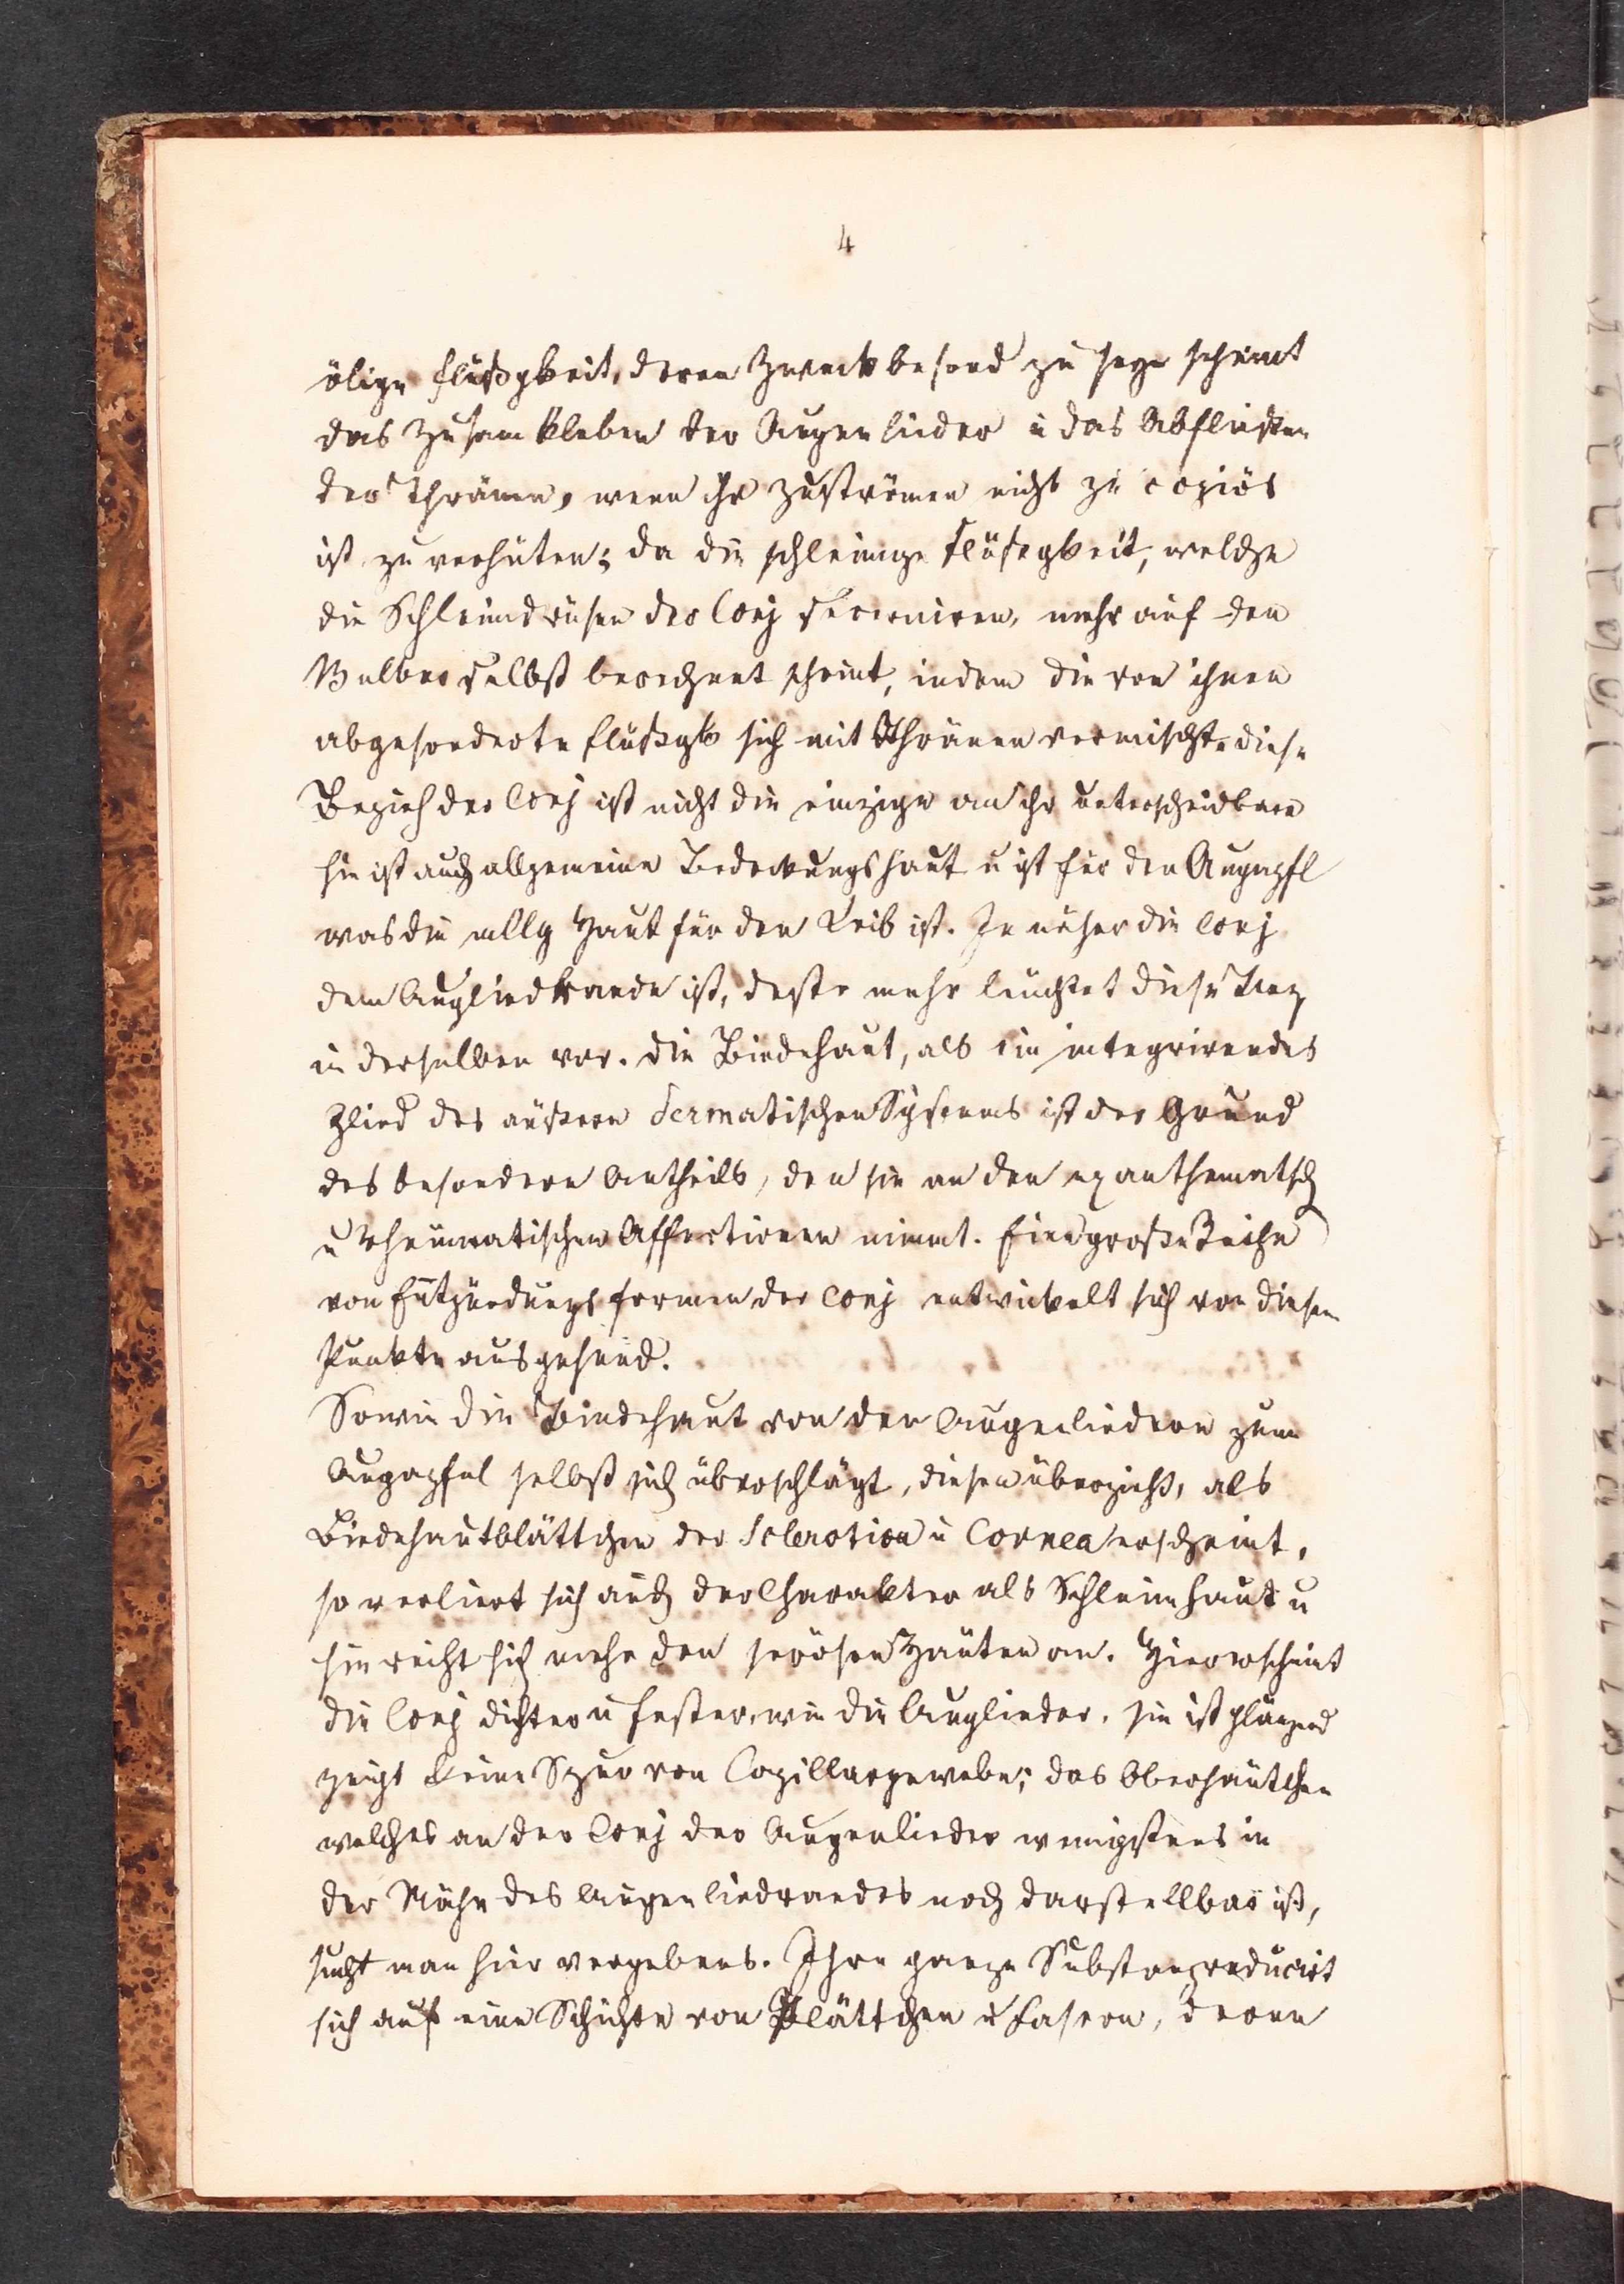 4
ölige Flüßgkeit, deren Zweck besond zu seyn scheint
das Zusamkleben der Augenlieder u das Abfließen
der Thränen, wenn ihr Zuströmen nicht zu copiös
ist zu verhüten; da die schleimige Flüsigkeit, welche
die Schleimdrüsen der Conj secerniren, mehr auf den
Bulbus selbst berechnet scheint, indem die von ihnen
abgesonderte Flüßgk sich mit Thränen vermischt. diese
Bezieh der Conj ist nicht die einzige an ihr unterscheidbare
sie ist auch allgemeine Bedeckungshaut u ist für den Augapfl
was die allg Haut für den Leib ist. Je näher die Conj
dem Augliedrande ist, desto mehr leuchtet diese Bez
in derselben vor. die Bindehaut, als ein integrirendes
Glied des äußern dermatischen Systems ist der Grund
des besondern Antheils, den sie an den exanthematsch
u rheumatischen Affectionen nimmt. Eine große Reihe
von Entzündungsformen der Conj entwickelt sich von diesem
Punkte ausgehend.
Sowie die Bindehaut von den Augenliedern zum
Augapfel selbst sich überschlägt, diesen überzieht, als
Bindehautblättchen der Sclerotica u Cornea erscheint,
so verliert sich auch der Charakter als Schleimhaut u
sie reiht sich mehr den serösen Häuten an. Hier erscheint
die Conj dichter u fester, wie die Auglieder. sie ist glänzend
zeigt keine Spur von Capillargewebe; das Oberhäutchen
welches an der Conj der Augenlieder wenigstens in
der Nähe des Augenliedrandes noch darstellbar ist,
sucht man hier vergebens. Ihre ganze Substanz reducirt
sich auf eine Schichte von Plättchen u Fasern, deren